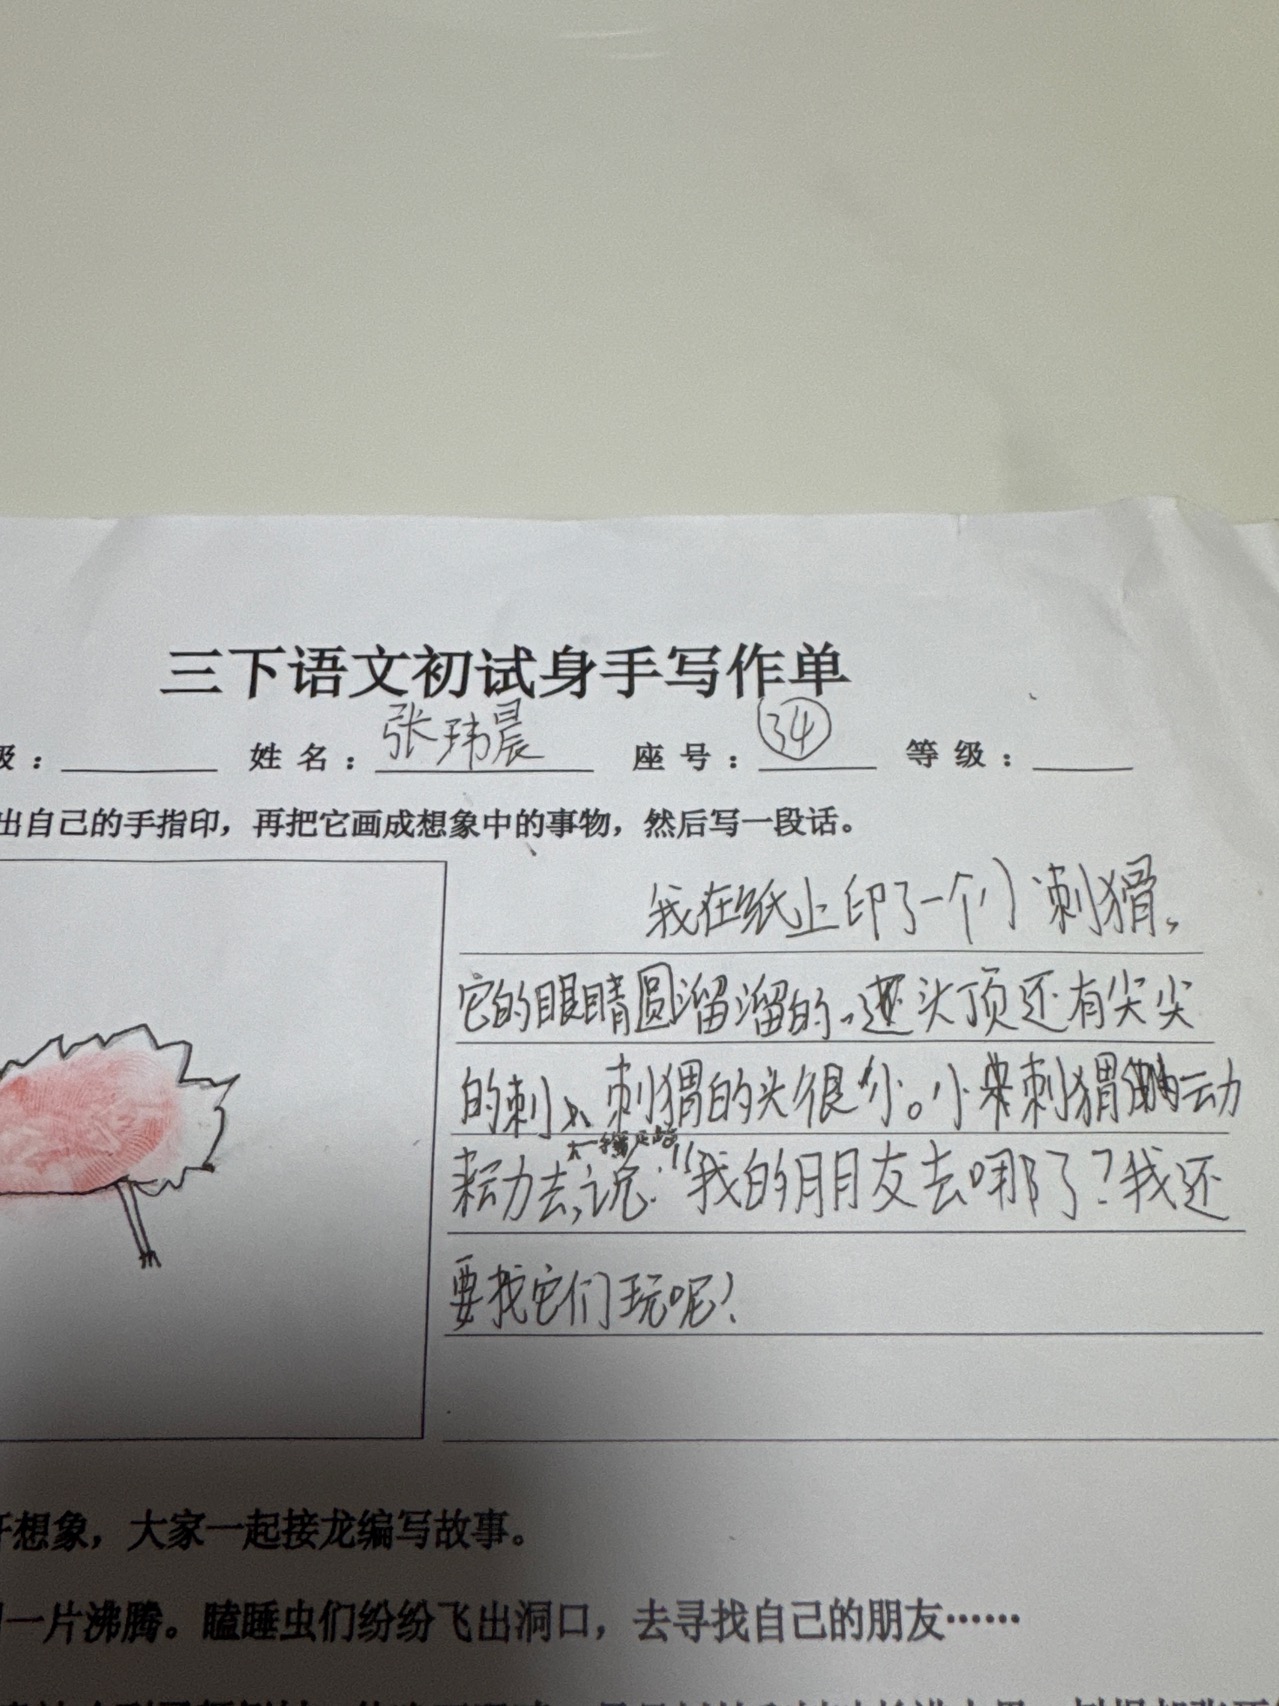 三下语文初试身手写作单
级：
姓名：张玮晨
座号：34
等级：
出自己的手指印，再把它画成想象中的事物，然后写一段话。
我在纸上印了一个小刺猬，
它的眼睛圆溜溜的，头顶还有尖尖
的刺，刺猬的头很小。小刺猬动
来动去，说：“我的朋友去哪了？我还
要找它们玩呢！
想象，大家一起接龙编写故事。
一片沸腾。瞌睡虫们纷纷飞出洞口，去寻找自己的朋友……